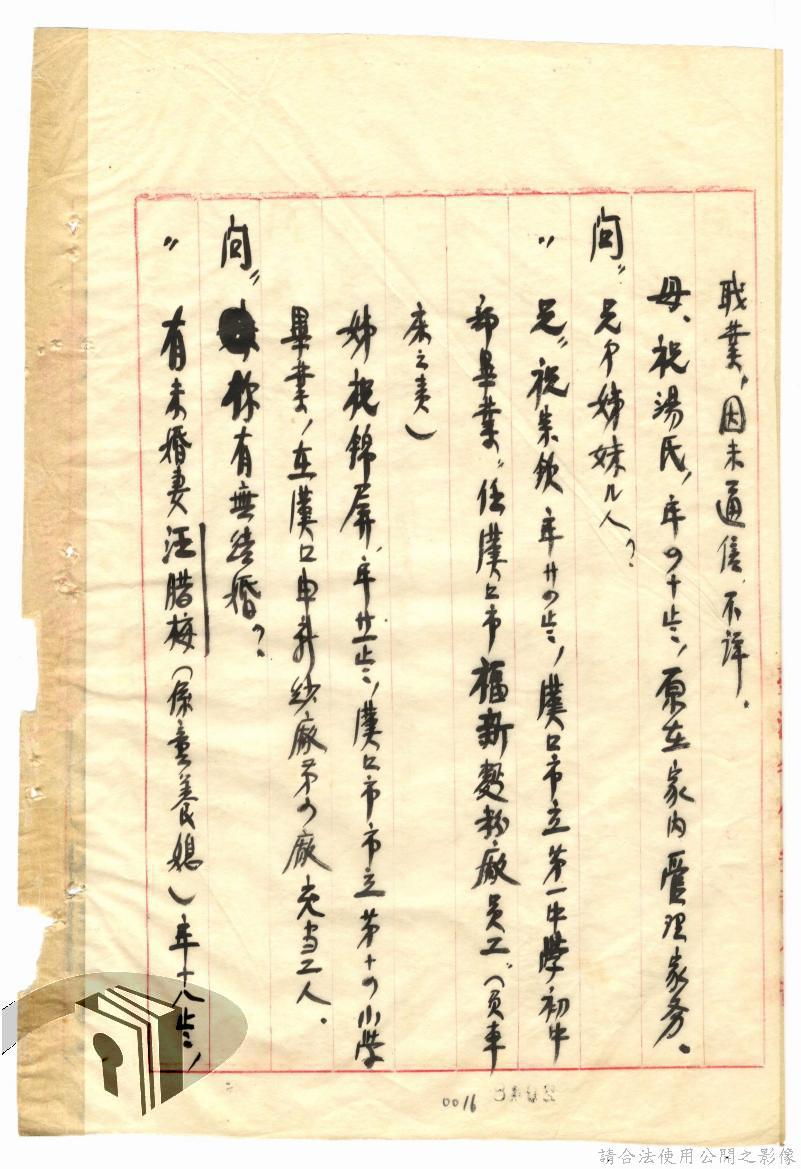 職業，因未通信，不詳。
母，祝湯氏，年四十歲，原在家內管理家务。
問〃兄弟姊妹几人？
〃兄〃祝榮欽 年廿四歲，漢口市立第一中學初中
部畢業〃任漢口市福新麵粉廠員工〃（負車
床之責）
姊祝錦屏，年廿一歲，漢口市市立第十四小學
畢業，在漢口申新纱廠第四廠充当工人。
問〃你有無结婚？
〃有未婚妻汪腊梅（係童養媳）年十八歲，
0016
請合法使用公開之影像